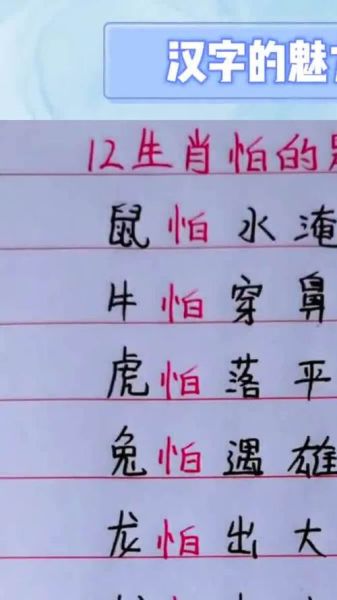 汉字的魅
12生肖怕的
鼠怕水淹
牛怕穿鼻
虎怕落平
兔怕遇雄
龙怕出大